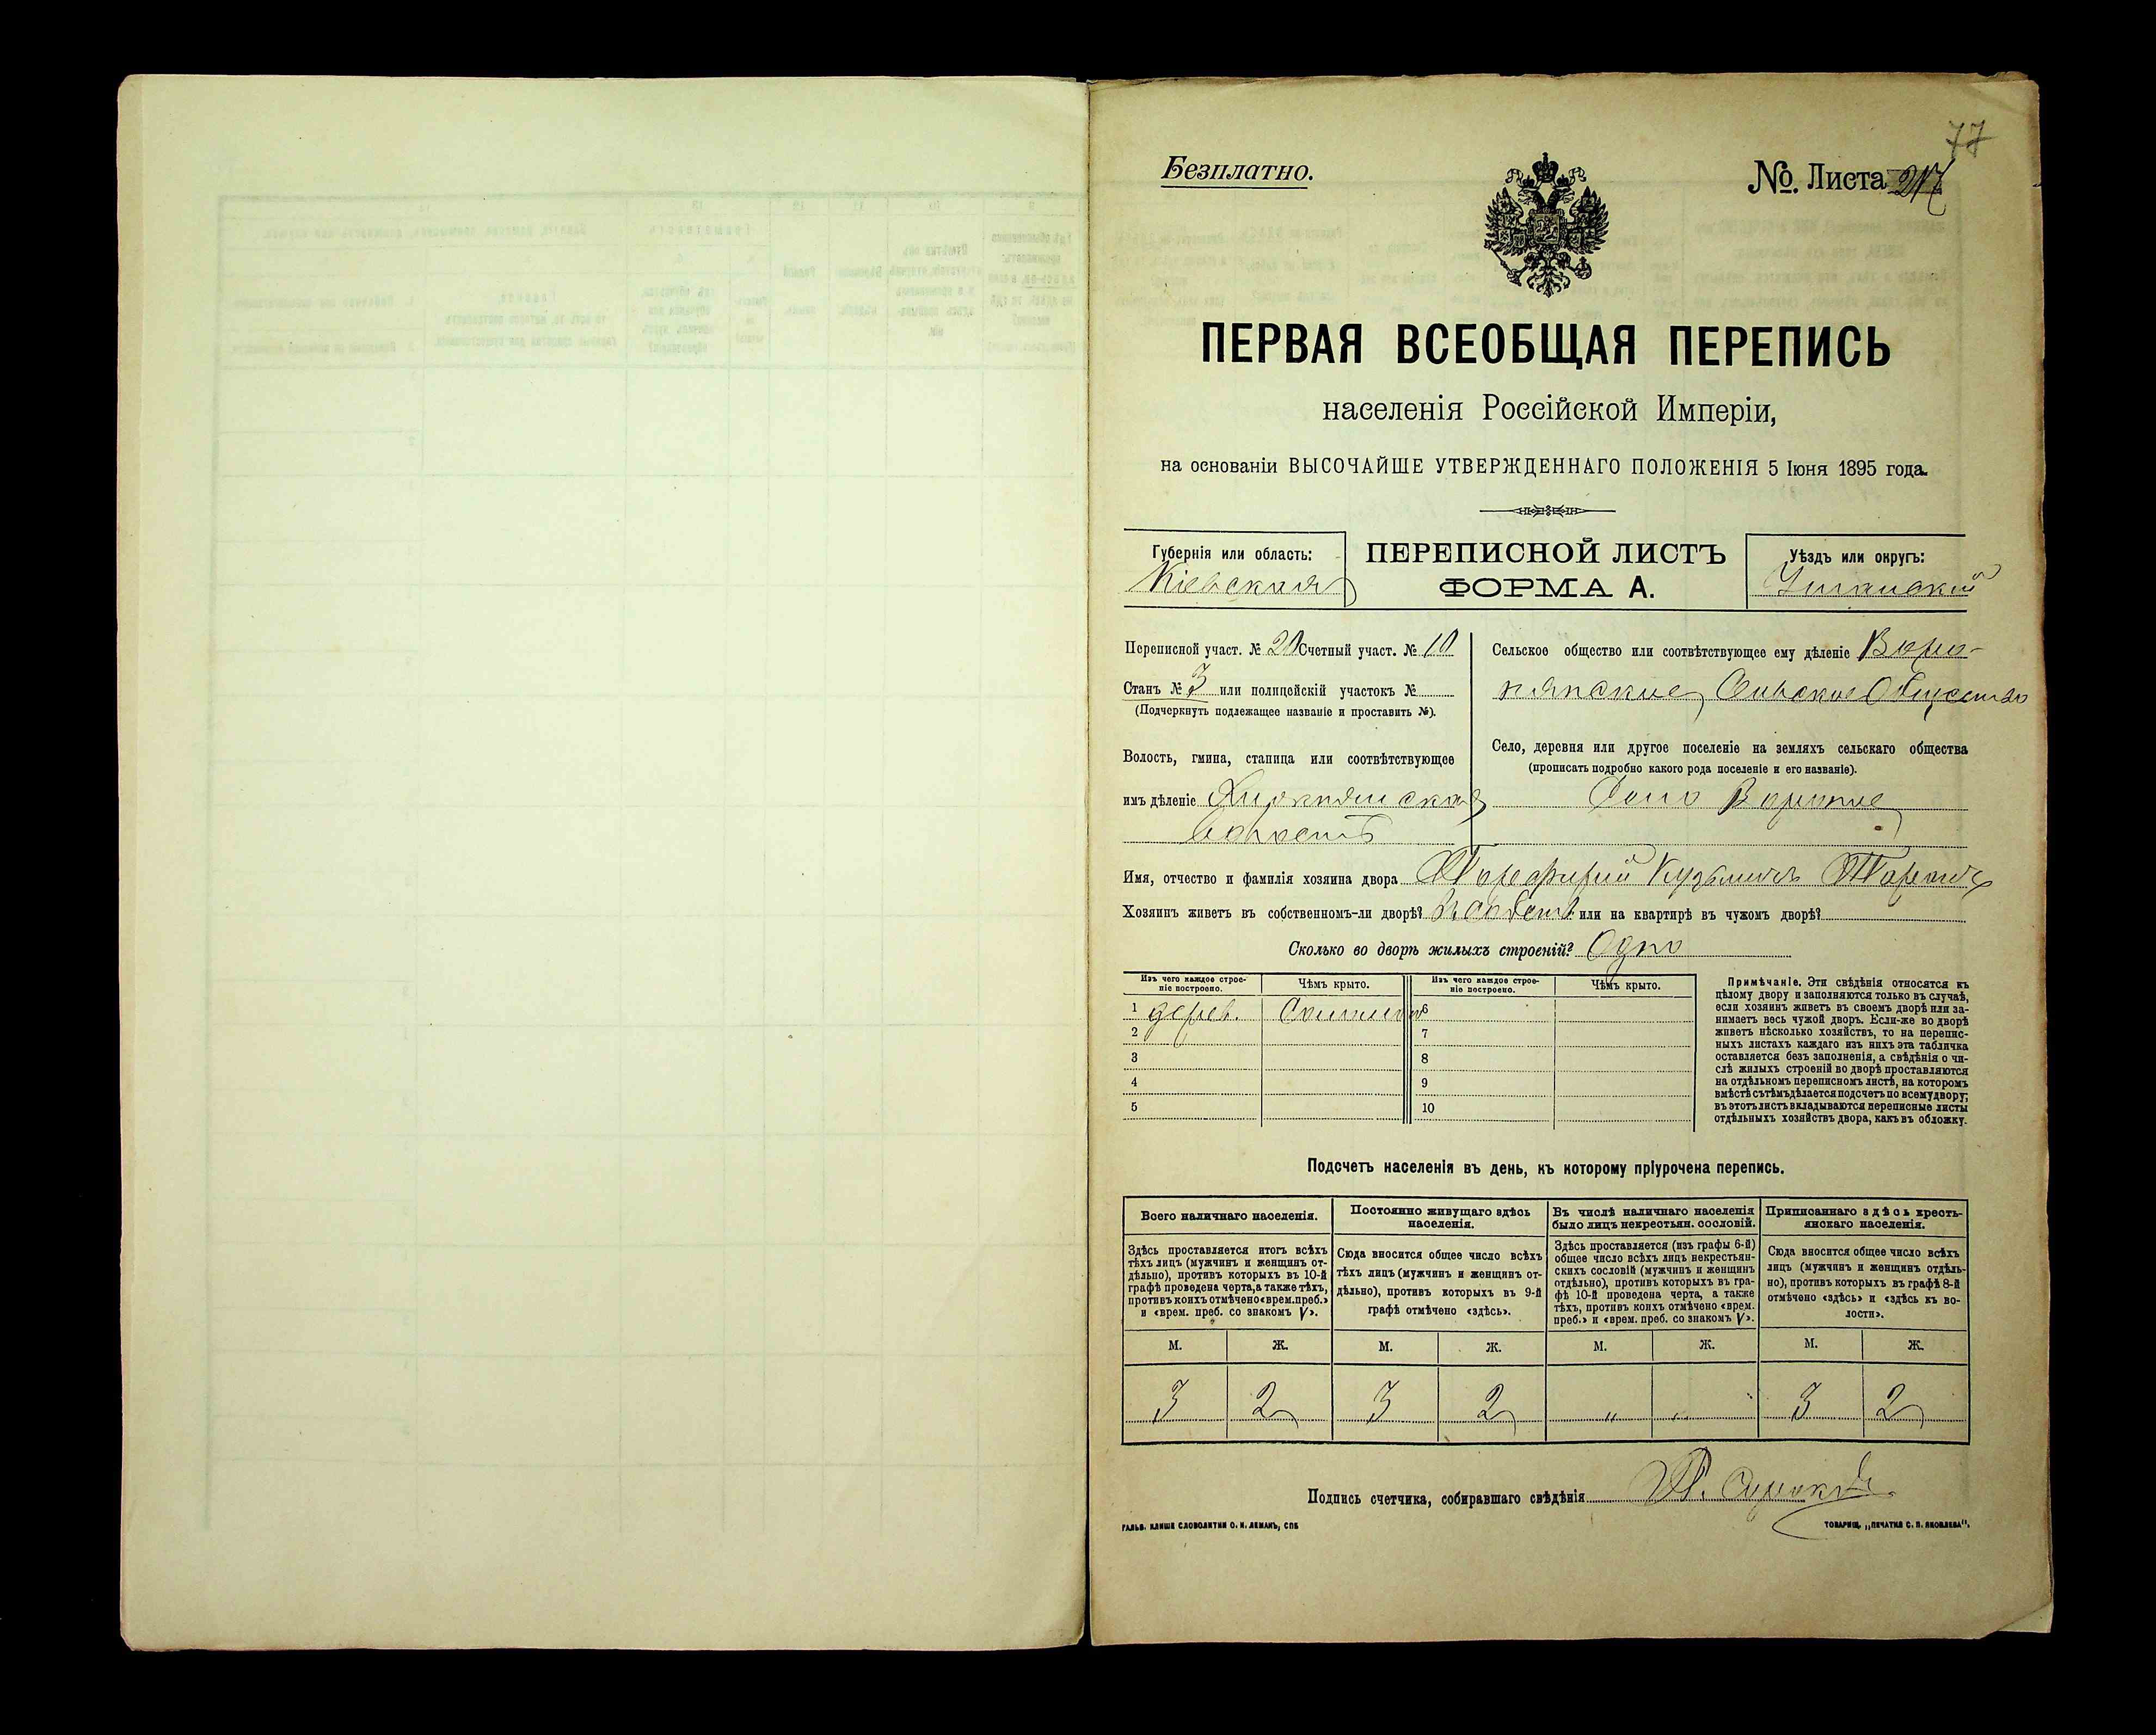 77
Безплатно.
№. Листа 217
ПЕРВАЯ ВСЕОБЩАЯ ПЕРЕПИСЬ
населенія Россійской Имперіи,
на основаніи ВЫСОЧАЙШЕ УТВЕРЖДЕННАГО ПОЛОЖЕНІЯ 5 Іюня 1895 года.
Губернія или область:
Кіевская
ПЕРЕПИСНОЙ ЛИСТЪ
ФОРМА А.
Уѣздъ или округъ:
Уманскій
Переписной участ. № 20 Счетный участ. № 10
Станъ № 3 или полицейскій участокъ №
(Подчеркнуть подлежащее названіе и проставить №).
Волость, гмина, станица или соотвѣтствующее
имъ дѣленіе
Волость
Сельское общество или соотвѣтствующее ему дѣленіе
Сельское Общество
Село, деревня или другое поселеніе на земляхъ сельскаго общества
(прописать подробно какого рода поселеніе и его названіе).
Село Вороное
Имя, отчество и фамилія хозяина двора Порфирій Кузьмичъ
Хозяинъ живетъ въ собственномъ-ли дворѣ? или на квартирѣ въ чужомъ дворѣ?
Сколько во дворѣ жилыхъ строеній? Одно
Изъ чего каждое строе-
ніе построено.
Чѣмъ крыто.
Изъ чего каждое строе-
ніе построено.
Чѣмъ крыто.
1 дерев. Соломою 6
2 7
3 8
4 9
5 10
Примѣчаніе. Эти свѣдѣнія относятся къ
цѣлому двору и заполняются только въ случаѣ,
если хозяинъ живетъ въ своемъ дворѣ или за-
нимаетъ весь чужой дворъ. Если-же во дворѣ
живетъ нѣсколько хозяйствъ, то на перепис-
ныхъ листахъ каждаго изъ нихъ эта табличка
оставляется безъ заполненія, а свѣдѣнія о чи-
слѣ жилыхъ строеній во дворѣ проставляются
на отдѣльномъ переписномъ листѣ, на которомъ
вмѣстѣ съ тѣмъ дѣлается подсчетъ по всему двору;
въ этотъ листъ вкладываются переписные листы
отдѣльныхъ хозяйствъ двора, какъ въ обложку.
Подсчетъ населенія въ день, къ которому пріурочена перепись.
Всего наличнаго населенія.
Здѣсь проставляется итогъ всѣхъ
тѣхъ лицъ (мужчинъ и женщинъ от-
дѣльно), противъ которыхъ въ 10-й
графѣ проведена черта, а также тѣхъ,
противъ коихъ отмѣчено «врем. преб.»
и «врем. преб. со знакомъ V».
Постоянно живущаго здѣсь
населенія.
Сюда вносится общее число всѣхъ
тѣхъ лицъ (мужчинъ и женщинъ от-
дѣльно), противъ которыхъ въ 9-й
графѣ отмѣчено «здѣсь».
Въ числѣ наличнаго населенія
было лицъ некрестьян. сословій.
Здѣсь проставляется (изъ графы 6-й)
общее число всѣхъ лицъ некрестьян-
скихъ сословій (мужчинъ и женщинъ
отдѣльно), противъ которыхъ въ гра-
фѣ 10-й проведена черта, а также
тѣхъ, противъ коихъ отмѣчено «врем.
преб.» и «врем. преб. со знакомъ V».
Приписаннаго здѣсь кресть-
янскаго населенія.
Сюда вносится общее число всѣхъ
лицъ (мужчинъ и женщинъ отдѣль-
но), противъ которыхъ въ графѣ 8-й
отмѣчено «здѣсь» и «здѣсь къ во-
лости».
М. Ж. М. Ж. М. Ж. М. Ж.
3 2 3 2 " " 3 2
Подпись счетчика, собиравшаго свѣдѣнія
ГАЛЬВ. КЛИШЕ СЛОВОЛИТНИ О. И. ЛЕМАНЪ, СПБ
ТОВАРИЩ. „ПЕЧАТНЯ С. П. ЯКОВЛЕВА".